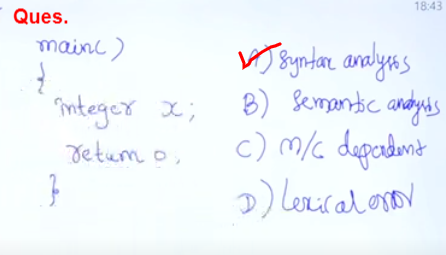 18:43
Ques.
main()
{
integer x;
return 0;
}
A) Syntax analysis
B) Semantic analysis
C) M/C dependent
D) Lexical error